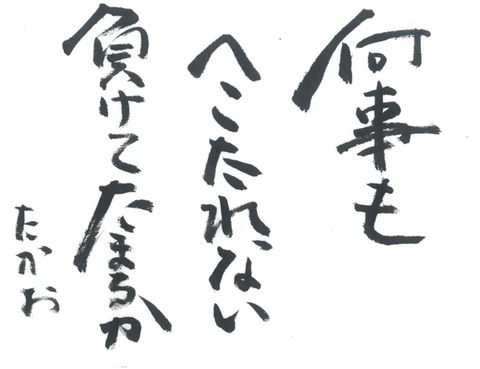 何事も
へこたれない
負けてたまるか
たかお